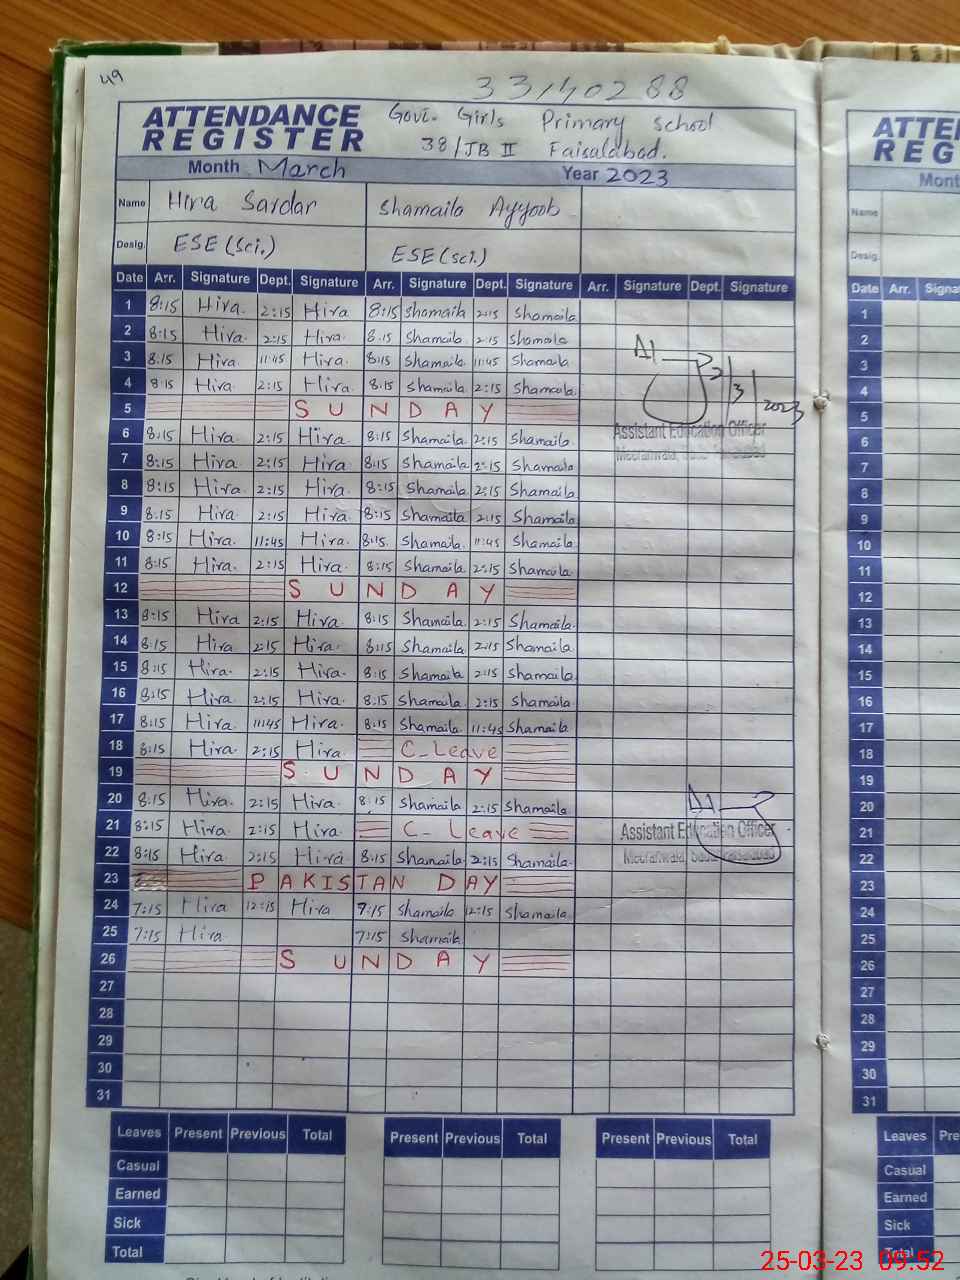 49
33140288
ATTENDANCE REGISTER
Govt. Girls Primary School
38/JB II Faisalabad.
Month March Year 2023
Name Hira Sardar Shamaila Ayyoob
Desig. ESE (Sci.) ESE (sci.)
Date Arr. Signature Dept. Signature Arr. Signature Dept. Signature Arr. Signature Dept. Signature
1 8:15 Hira 2:15 Hira 8:15 Shamaila 2:15 Shamaila
2 8:15 Hira 2:15 Hira 8:15 Shamaila 2:15 Shamaila
3 8:15 Hira 11:45 Hira 8:15 Shamaila 11:45 Shamaila
4 8:15 Hira 2:15 Hira 8:15 Shamaila 2:15 Shamaila
5 SUNDAY
2/3/2023
Assistant Education Officer
6 8:15 Hira 2:15 Hira 8:15 Shamaila 2:15 Shamaila
7 8:15 Hira 2:15 Hira 8:15 Shamaila 2:15 Shamaila
8 8:15 Hira 2:15 Hira 8:15 Shamaila 2:15 Shamaila
9 8:15 Hira 2:15 Hira 8:15 Shamaila 2:15 Shamaila
10 8:15 Hira 11:45 Hira 8:15 Shamaila 11:45 Shamaila
11 8:15 Hira 2:15 Hira 8:15 Shamaila 2:15 Shamaila
12 SUNDAY
13 8:15 Hira 2:15 Hira 8:15 Shamaila 2:15 Shamaila
14 8:15 Hira 2:15 Hira 8:15 Shamaila 2:15 Shamaila
15 8:15 Hira 2:15 Hira 8:15 Shamaila 2:15 Shamaila
16 8:15 Hira 2:15 Hira 8:15 Shamaila 2:15 Shamaila
17 8:15 Hira 11:45 Hira 8:15 Shamaila 11:45 Shamaila
18 8:15 Hira 2:15 Hira C-Leave
19 SUNDAY
20 8:15 Hira 2:15 Hira 8:15 Shamaila 2:15 Shamaila
21 8:15 Hira 2:15 Hira C-Leave
Assistant Education Officer
22 8:15 Hira 2:15 Hira 8:15 Shamaila 2:15 Shamaila
23 PAKISTAN DAY
24 7:15 Hira 12:15 Hira 7:15 Shamaila 12:15 Shamaila
25 7:15 Hira 7:15 Shamaila
26 SUNDAY
27
28
29
30
31
Leaves Present Previous Total Present Previous Total Present Previous Total
Casual
Earned
Sick
Total
Month
Name
Desig.
Date Arr.
1
2
3
4
5
6
7
8
9
10
11
12
13
14
15
16
17
18
19
20
21
22
23
24
25
26
27
28
29
30
31
Leaves
Casual
Earned
Sick
Total
25-03-23 09:52